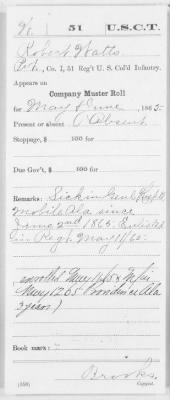 W. 51 U.S.C.T.
Robert Watts
Pvt., Co. I, 51 Reg't U. S. Col'd Infantry.
Appears on
Company Muster Roll
for May & June, 1865.
Present or absent Absent
Stoppage, $ 100 for
Due Gov't, $ 100 for
Remarks: Sick in Genl Hosptl
Mobile Ala since
June 2nd 1865. Enlisted
in Regt. May 11/65.
enrolled May
May 12 65 Ala
3 years)
Book mark:
Brooks
(358) Copyist.